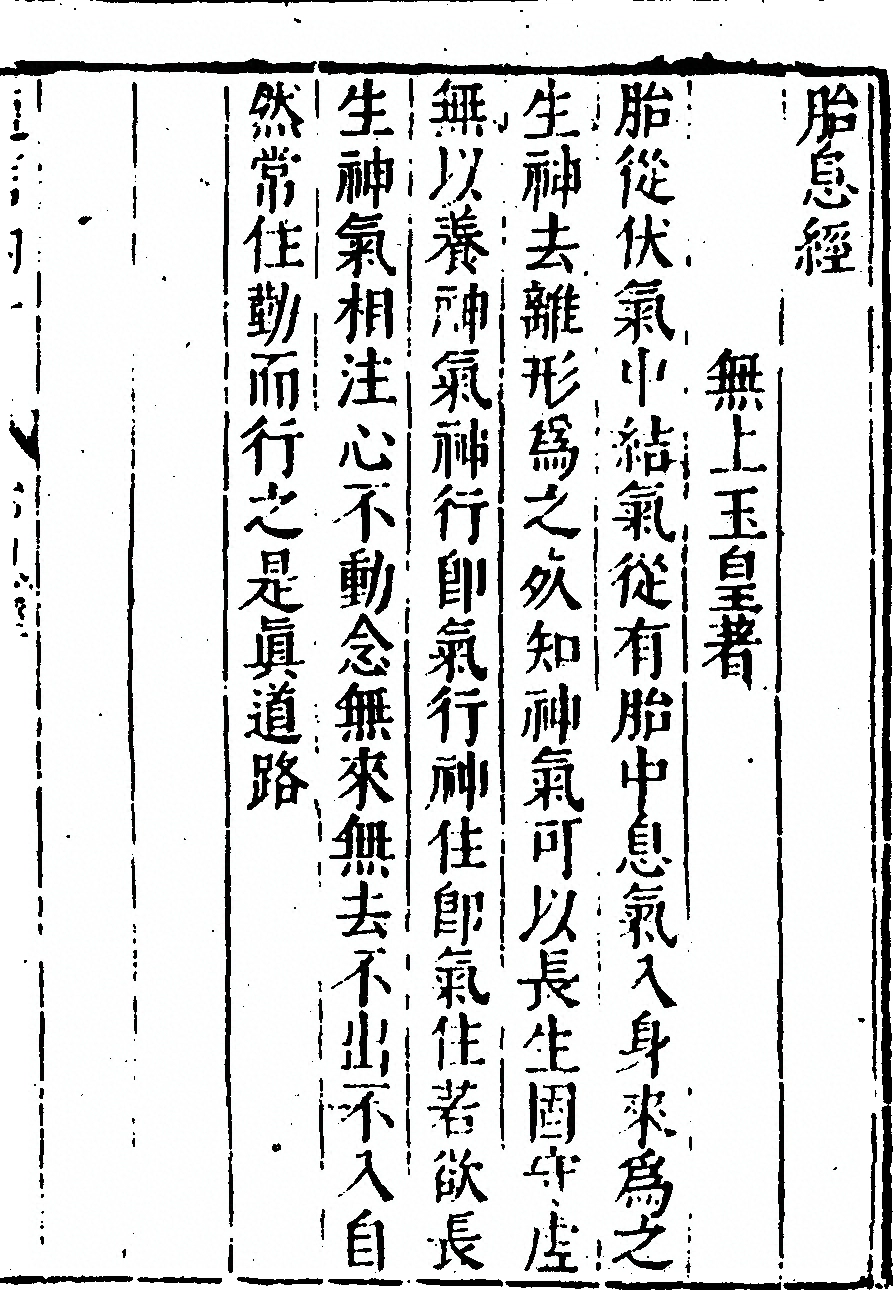 胎息經
無上玉皇著
胎從伏氣中結氣從有胎中息氣入身來爲之
生神去離形爲之㱙知神氣可以長生固守虛
無以養神氣神行卽氣行神住卽氣住若欲長
生神氣相注心不動念無來無去不出不入自
然常住勤而行之是眞道路